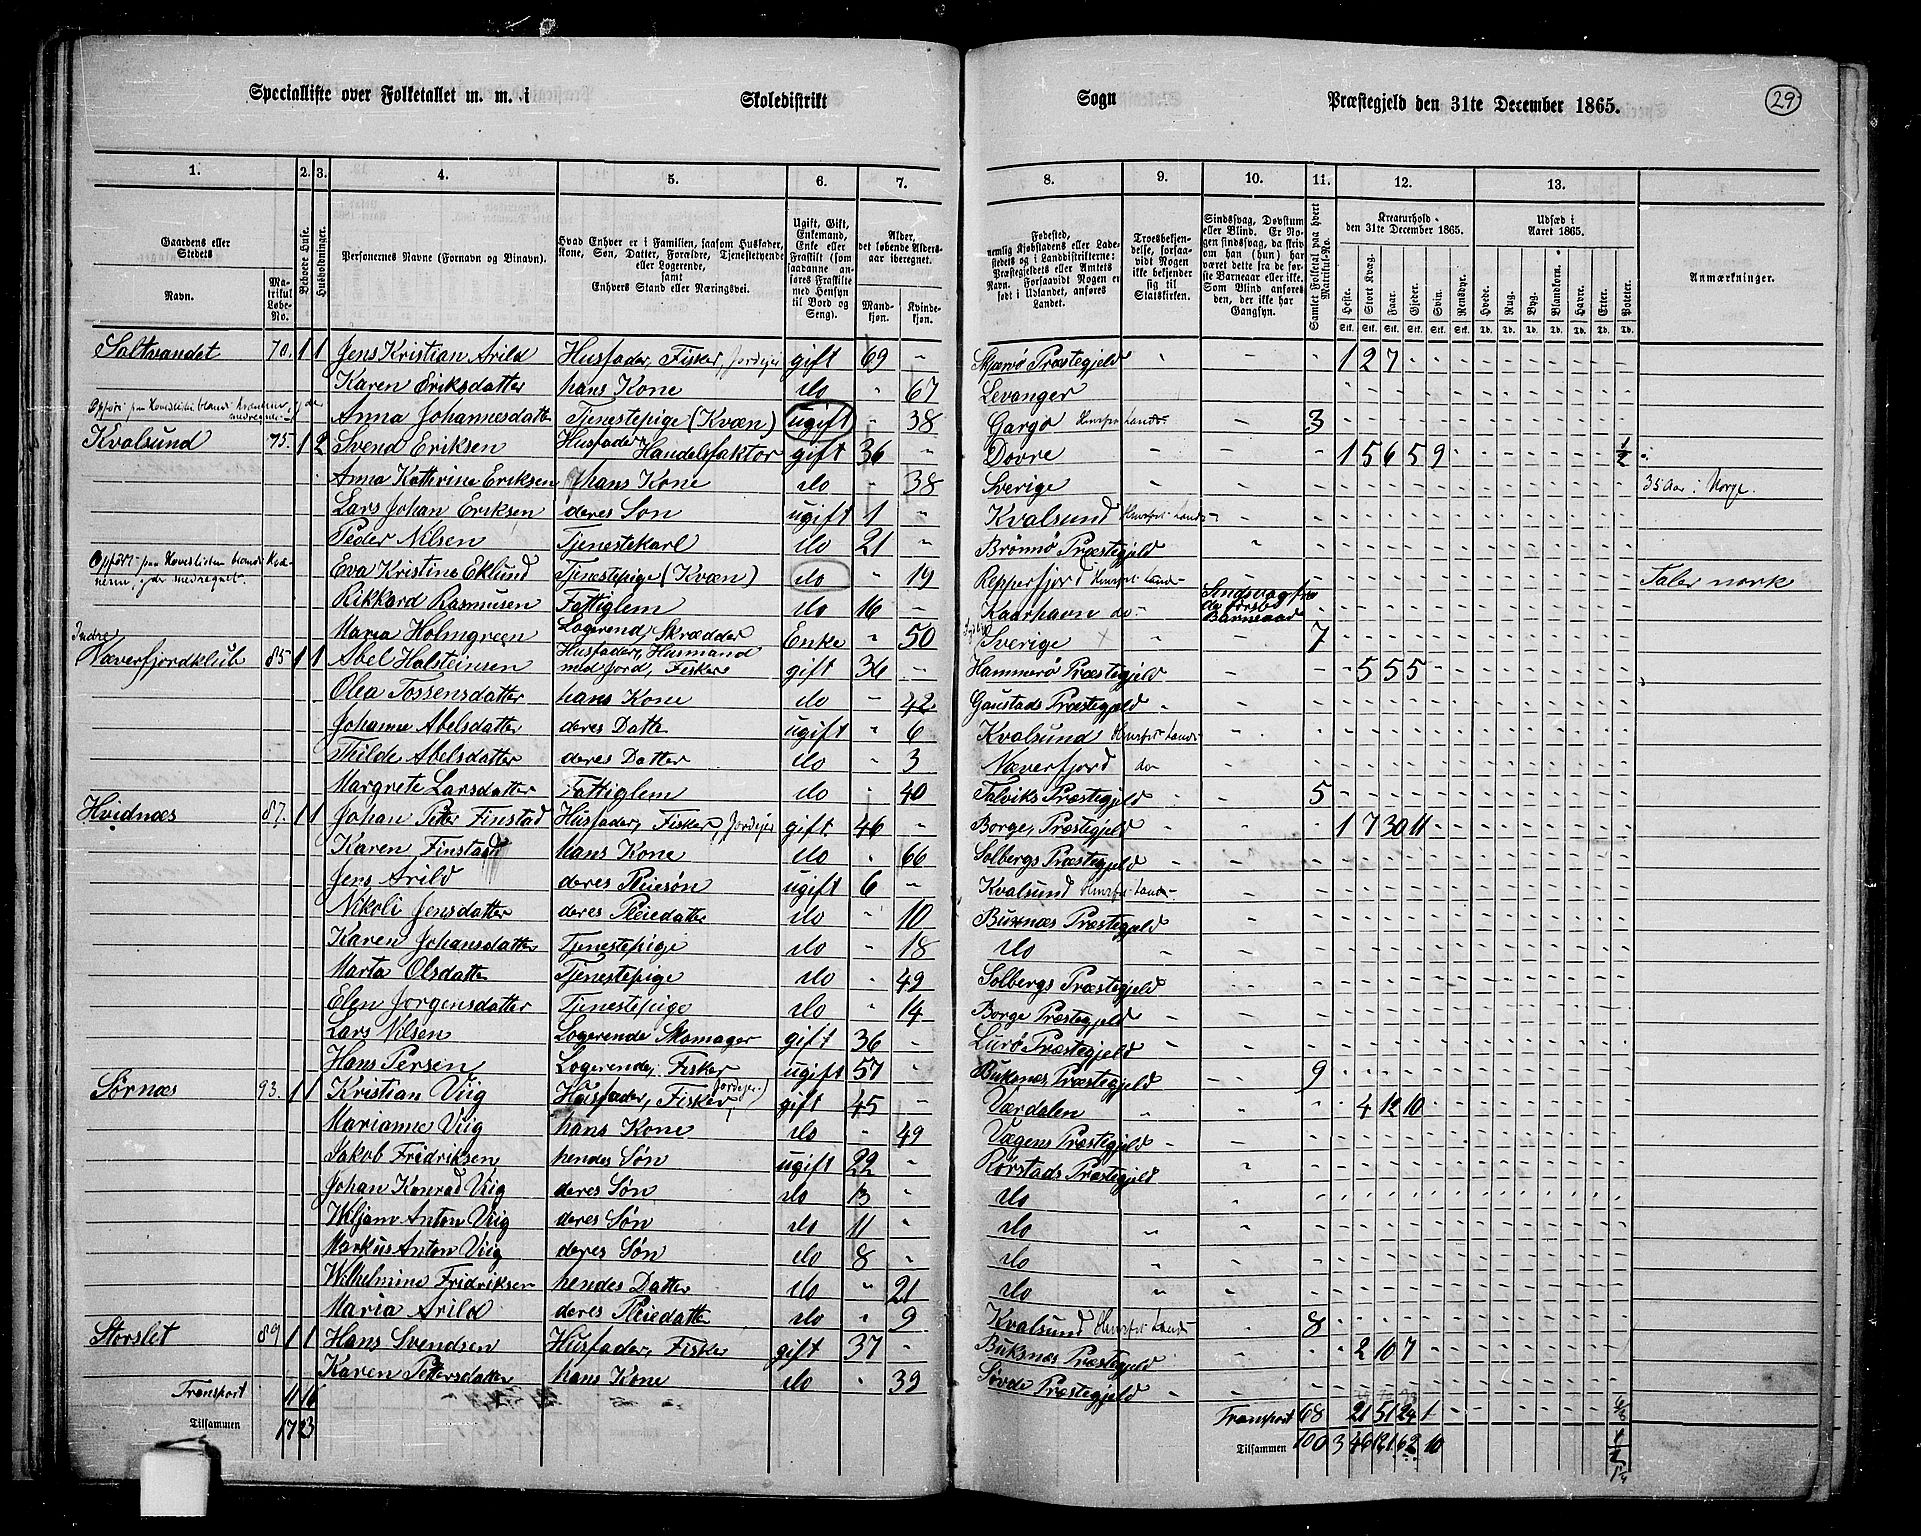 Specialliste over Folketallet m. m. i Skoledistrikt Sogn Præstegjeld den 31te December 1865. 29
1. 2. 3. 4. 5. 6. 7. 8. 9. 10. 11. 12. 13.
Gaardens eller Stedets Navn. Matrikul Løbe-No. Beboede Huse. Husholdninger. Personernes Navne (Fornavn og Binavn). Hvad Enhver er i Familien, saasom Husfader, Kone, Søn, Datter, Forældre, Tjenestetydende eller Logerende, samt Enhvers Stand eller Næringsvei. Ugift, Gift, Enkemand, Enke eller Fraskilt (som saadanne anføres Fraskilte med Hensyn til Bord og Seng). Alder, det løbende Aldersaar iberegnet. Mandkjøn. Kvindekjøn. Fødested, nemlig Kjøbstadens eller Ladestedets og i Landdistrikterne: Præstegjeldets eller Amtets Navn. Forsaavidt Nogen er født i Udlandet, anføres Landet. Troesbekjendelse, forsaavidt Nogen ikke bekjender sig til Statskirken. Sindssvag, Døvstum eller Blind. Er Nogen sindssvag, da skrives om han (hun) har været dette fra de første Barneaar eller ikke. Som Blind anføres den, der ikke har Gangsyn. Samlet Folketal paa hvert Matrikul-No. Kreaturhold den 31te December 1865. Heste. Stort Kvæg. Faar. Gjeder. Svin. Rensdyr. Udsæd i Aaret 1865. Hvede. Rug. Byg. Blandkorn. Havre. Erter. Poteter. Anmærkninger.
Saltvandet 70. 1 1 Jens Kristian Arild Husfader, Fisker, Jordejer gift 69 Præstegjeld 1 2 7
Karen Eriksdatter hans Kone do 67 Levanger
Anna Johannesdatter Tjenestepige (Kvæn) ugift 38 Gargo 3
Kvalsund 75. 1 2 Svend Eriksen Husfader Handelsfaktor gift 36 Dovre 1 5 6 5 9 1/2
Anna Kathrina Eriksen hans Kone do 38 Sverige 35 Aar i Norge.
Lars Johan Eriksen deres Søn ugift 1 Kvalsund
Peder Nilsen Tjenestekarl do 21 Brønnø Præstegjeld
Eva Kristina Eklund Tjenestepige (Kvæn) do 19 Repperfjord Taler norsk
Rikkard Rasmusen Fattiglem do 16 Kaarhavn do Sindsvag fra de første Barneaar
Maria Holmgreen Logerend, Skrædder Enke 50 Sverige 7
Indre Næverfjordklub 85 1 1 Abel Halsteinsen Husfader, Husmand med Jord, Fisker gift 36 Hammerø Præstegjeld 5 5 5
Olea Tossensdatter hans Kone do 42 Præstegjeld
Johanne Abelsdatter deres Datt ugift 6 Kvalsund
Thilde Abelsdatter deres Datter do 3 Næverfjord do
Margrete Larsdatter Fattiglem do 40 Talviks Præstegjeld 5
Hvidnæs 87. 1 1 Johan Petter Finstad Husfader, Fisker, Jordejer gift 46 Borge, Præstegjeld 1 7 30 11
Karen Finstad hans Kone do 66 Solbergs Præstegjeld
Jens Arild deres Pleiesøn ugift 6 Kvalsund
Nikoli Jensdatter deres Pleiedatter do 10 Buxnæs Præstegjeld
Karen Johansdatter Tjenestepige do 18 do
Marta Olsdatt Tjenestepige do 49 Solbergs Præstegjeld
Elen Jørgensdatter Tjenestepige do 14 Borge Præstegjeld
Lars Nilsen Logerende Skomager gift 36 Lurø Præstegjeld
Hans Persen Logerende, Fisker ugift 57 Buksnæs Præstegjeld 9
Sørnæs 93. 1 1 Kristian Viig Husfader, Fisker, Jordejer gift 45 Værdalen 4 12 10
Marianne Viig hans Kone do 49 Præstegjeld
Jakob Fridriksen hendes Søn ugift 22 Rørstads Præstegjeld
Johan Konrad Viig deres Søn do 13 do
Wiljam Anton Viig deres Søn do 11 do
Markus Anton Viig deres Søn do 8 do
Wilhelmine Fridriksen hendes Datter do 21 do
Maria Arild deres Pleiedatt do 9 Kvalsund 8
Storslet 89 1 1 Hans Svendsen Husfader, Fisker gift 37 Buksnæs Præstegjeld 2 10 7
Karen Pettersdatter hans Kone do 39 Præstegjeld
Transport 11 16 Transport 68 21 51 24 1
Tilsammen 17 23 Tilsammen 100 3 46 121 62 10